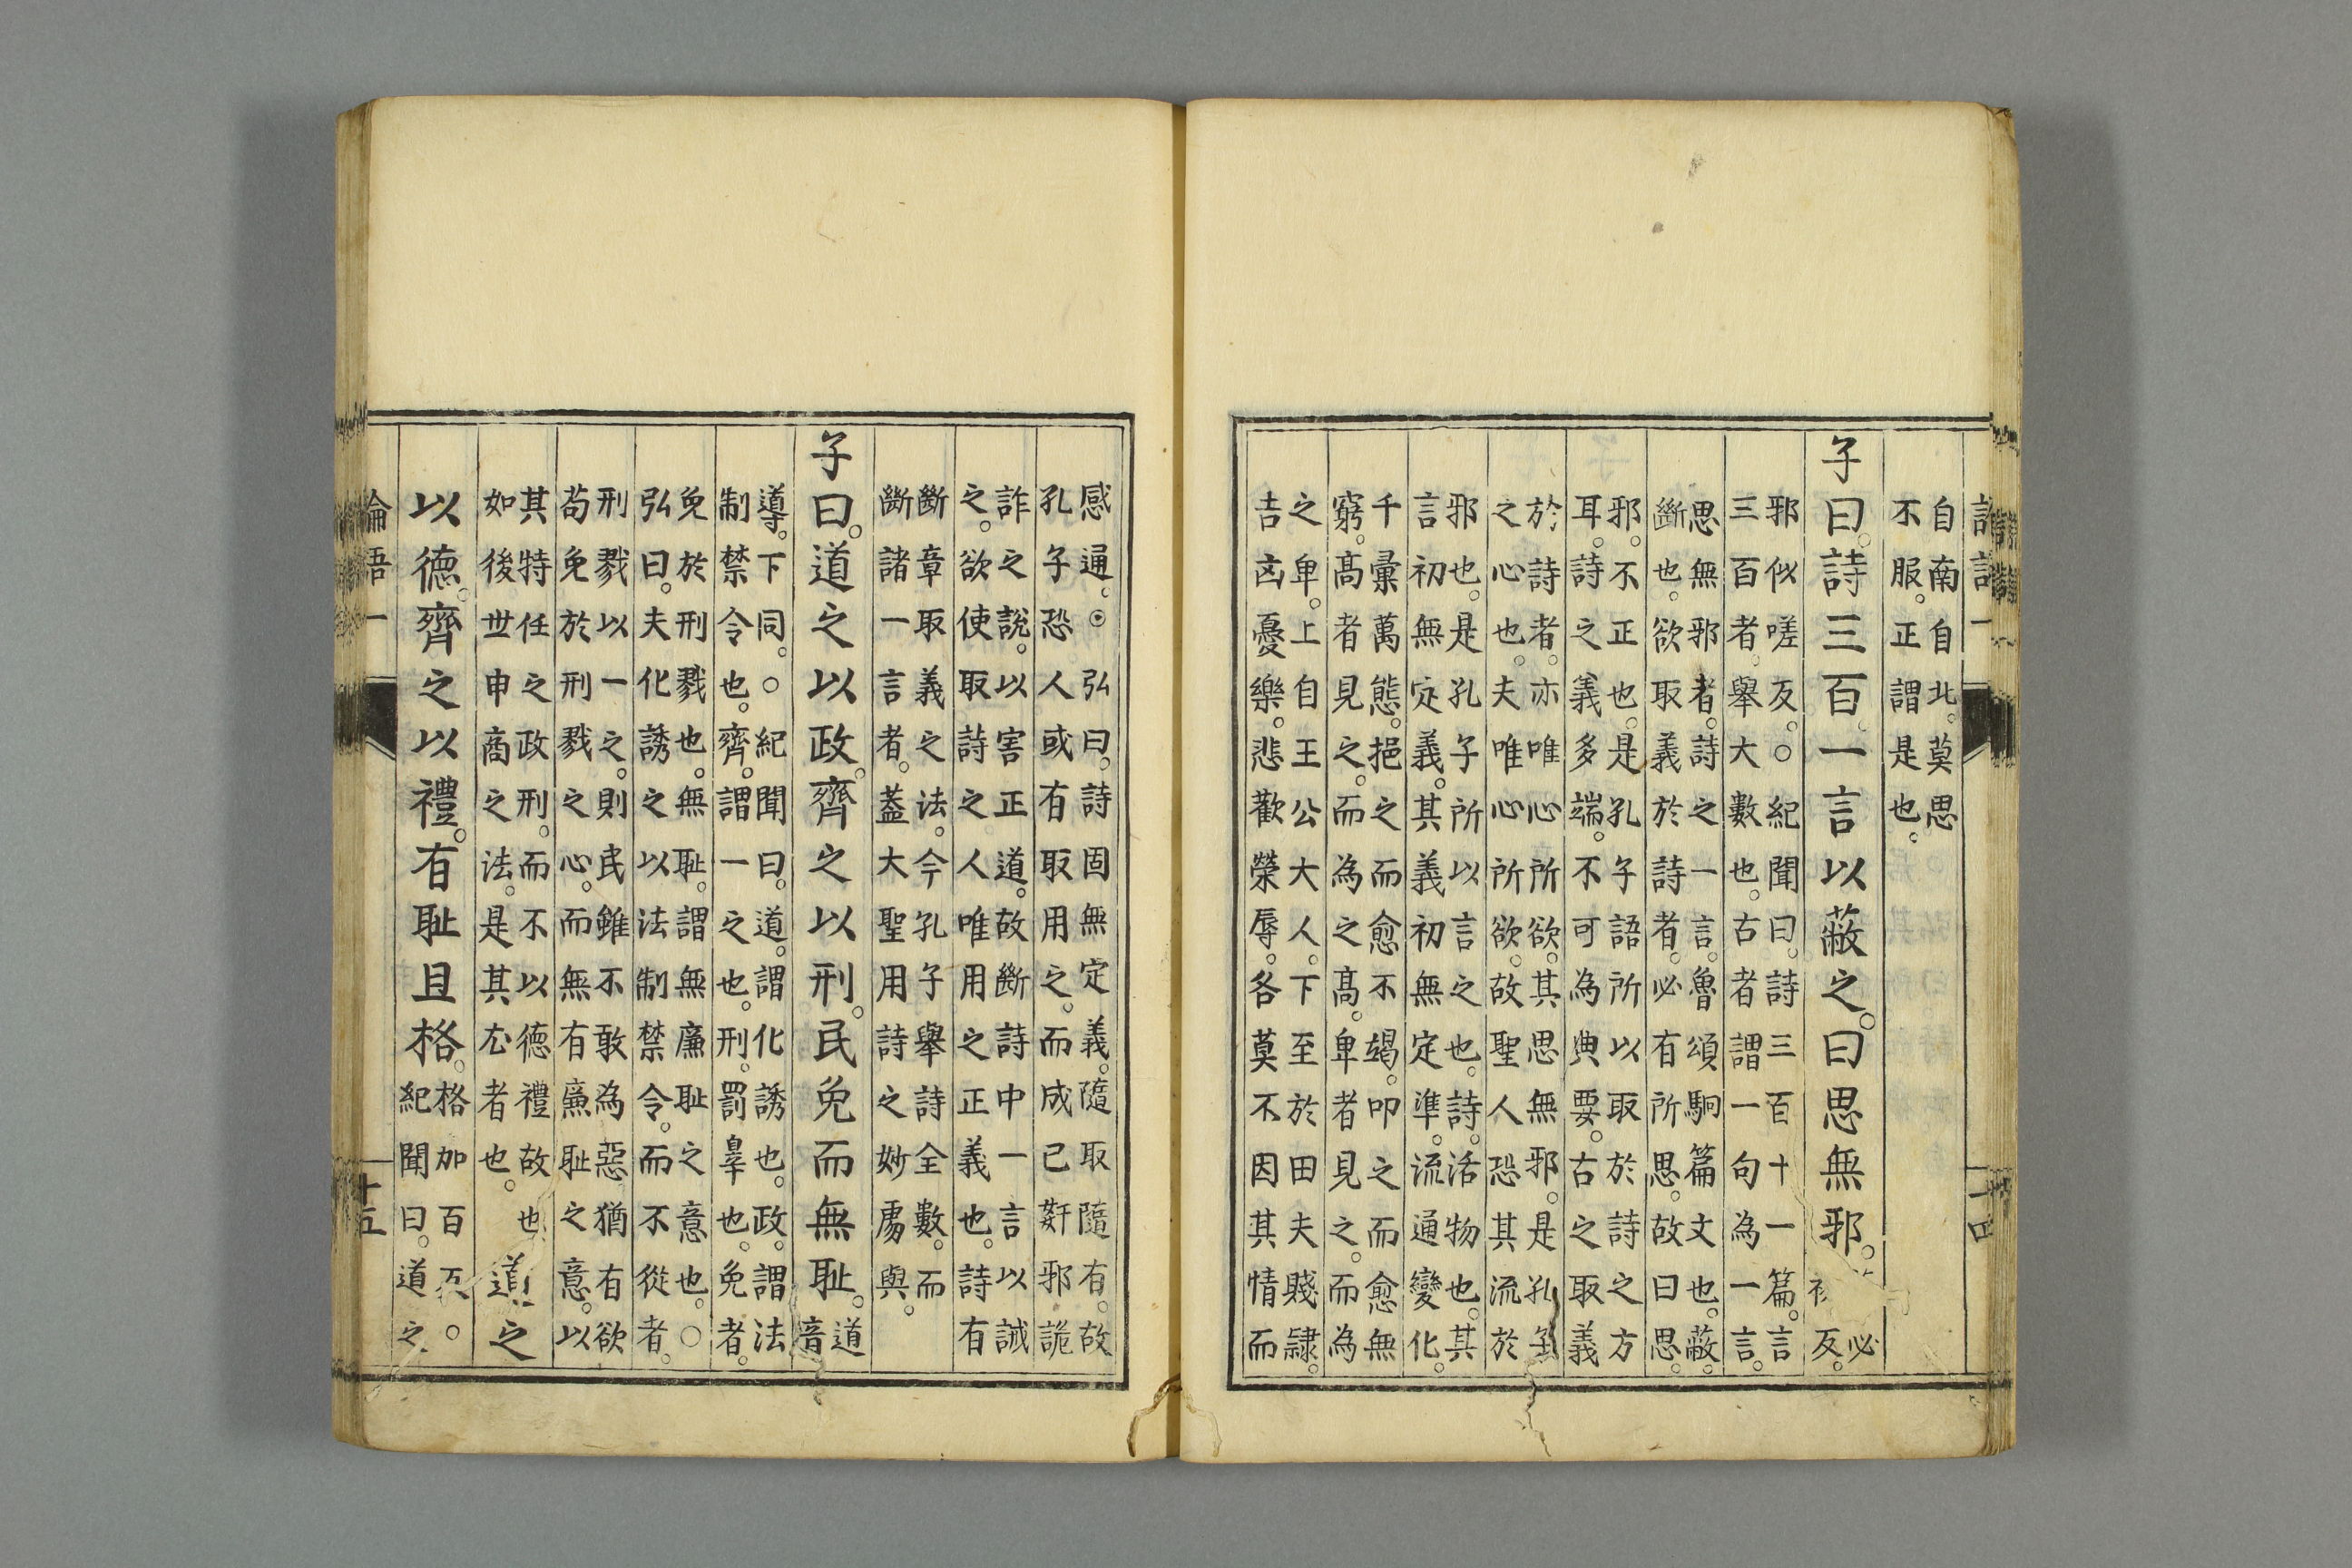 論語一
十四
自南自北。莫思
不服。正謂是也。
子曰。詩三百。一言以蔽之。曰思無邪。
必
反。
邪似嗟反。○紀聞曰。詩三百十一篇。言
三百者。舉大數也。古者謂一句為一言。
思無邪者。詩之一言。魯頌駉篇文也。蔽。
斷也。欲取義於詩者。必有所思。故曰思。
邪。不正也。是孔子語所以取於詩之方
耳。詩之義多端。不可為典要。古之取義
於詩者。亦唯心所欲。其思無邪。是孔子
之心也。夫唯心所欲。故聖人恐其流於
邪也。是孔子所以言之也。詩。活物也。其
言初無定義。其義初無定準。流通變化。
千彙萬態。挹之而愈不竭。叩之而愈無
窮。髙者見之。而為之髙。卑者見之。而為
之卑。上自王公大人。下至於田夫賤隸。
吉凶憂樂。悲歡榮辱。各莫不因其情而
感通。◉弘曰。詩固無定義。隨取隨有。故
孔子恐人或有取用之。而成己姧邪詭
詐之說。以害正道。故斷詩中一言以誡
之。欲使取詩之人唯用之正義也。詩有
斷章取義之法。今孔子舉詩全數。而
斷諸一言者。蓋大聖用詩之妙處與。
子曰。道之以政。齊之以刑。民免而無耻。
道
音
導。下同。○紀聞曰。道。謂化誘也。政。謂法
制禁令也。齊。謂一之也。刑。罰辠也。免者。
免於刑戮也。無耻。謂無廉耻之意也。○
弘曰。夫化誘之以法制禁令。而不從者。
刑戮以一之。則民雖不敢為惡。猶有欲
苟免於刑戮之心。而無有廉耻之意。以
其特任之政刑。而不以德禮故也
如後世申商之法。是其尤者也。
道之
以德。齊之以禮。有耻且格。
格加百反。○
紀聞曰。道之
論語一
十五